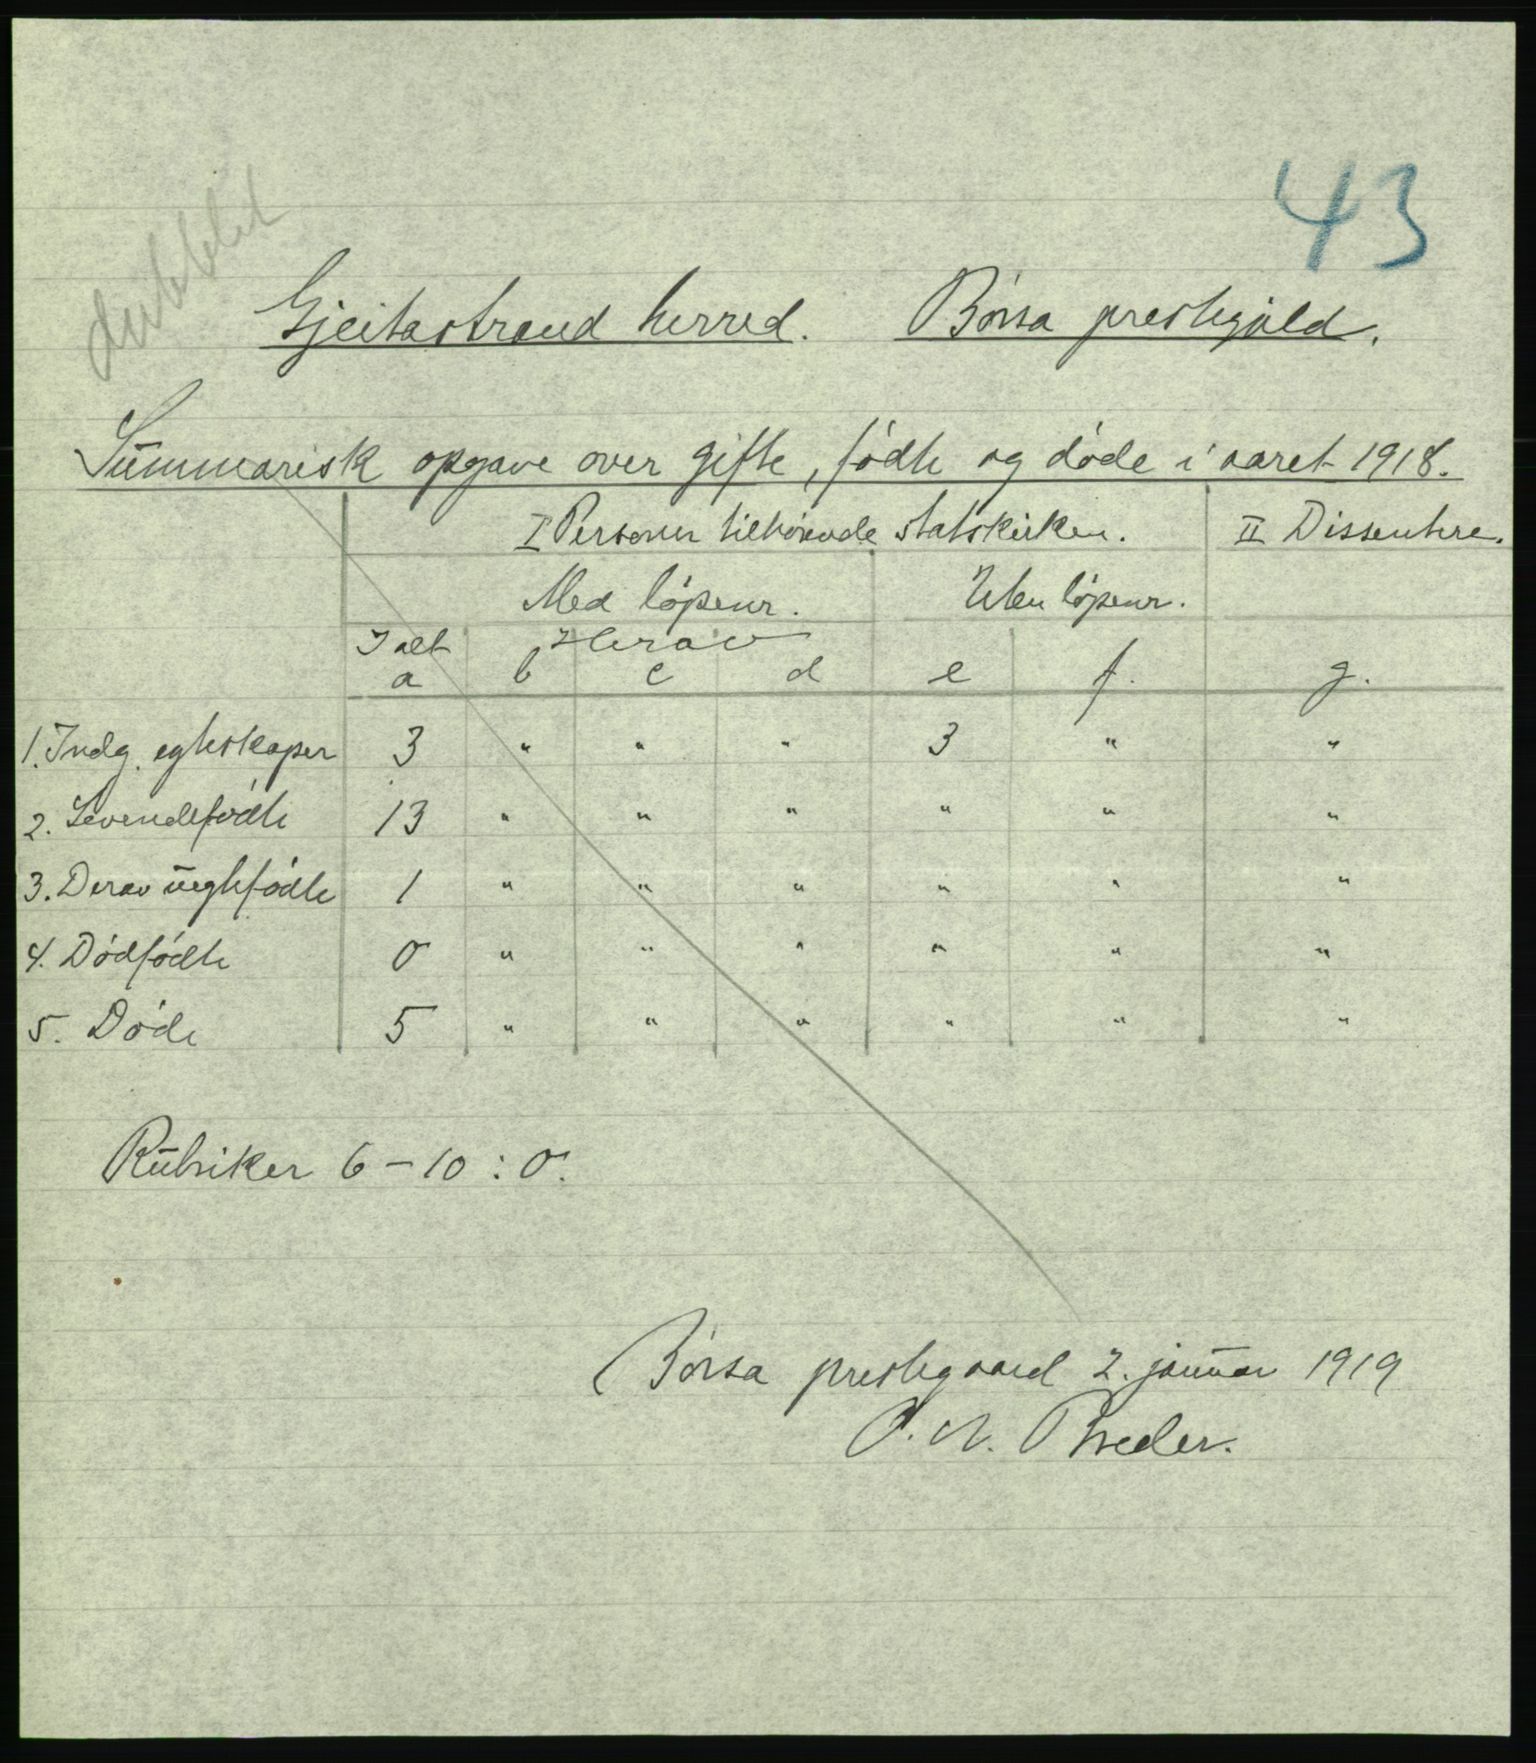 43
dublet
Gjeitastrand herred. Börsa prestegjeld.
Summarisk opgave over gifte, födte og döde i aaret 1918.
I Personer tilhörende statskirken. II Dissentere.
Med löpenr. Uten löpenr.
I alt Herav
a b c d e f. g.
1. Indg. egteskaper 3 " " " 3 " "
2. Levendefödte 13 " " " " " "
3. Derav uegtefödte 1 " " " " " "
4. Dödfödte 0 " " " " " "
5. Döde 5 " " " " " "
Rubriker 6 – 10 : 0.
Börsa prestegaard 2. januar 1919